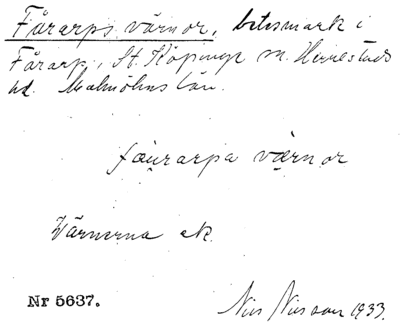 Fårarps värnor, betesmark i
Fårarp, St. Köpinge sn. Herrestads
hd. Malmöhus län.
fæu̯rarpa værnor
Värnorna ek.
Nr 5637.
Nils Nilsson 1933.